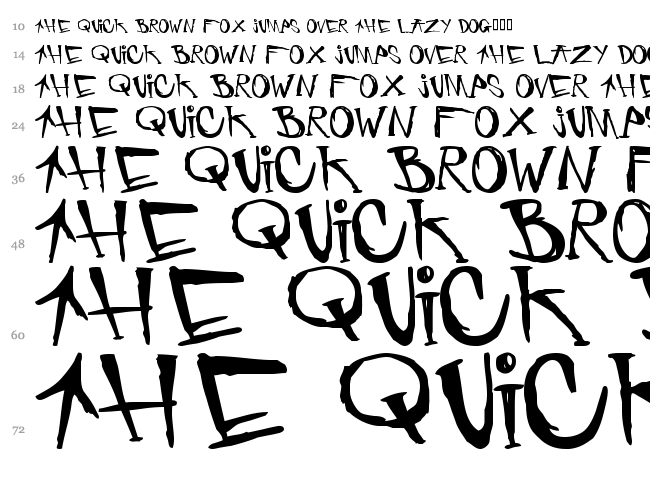 10 THE QUiCK BROWN FOX JUMPS OVER THE LAZY DOG
14 THE QUiCK BROWN FOX JUMPS OVER THE LAZY DO
18 THE QUiCK BROWN FOX JUMPS OVER THE
24 THE QUiCK BROWN FOX JUMPS
36 THE QUiCK BROWN F
48 THE QUiCK BRO
60 THE QUiCK
72 THE QUiCK